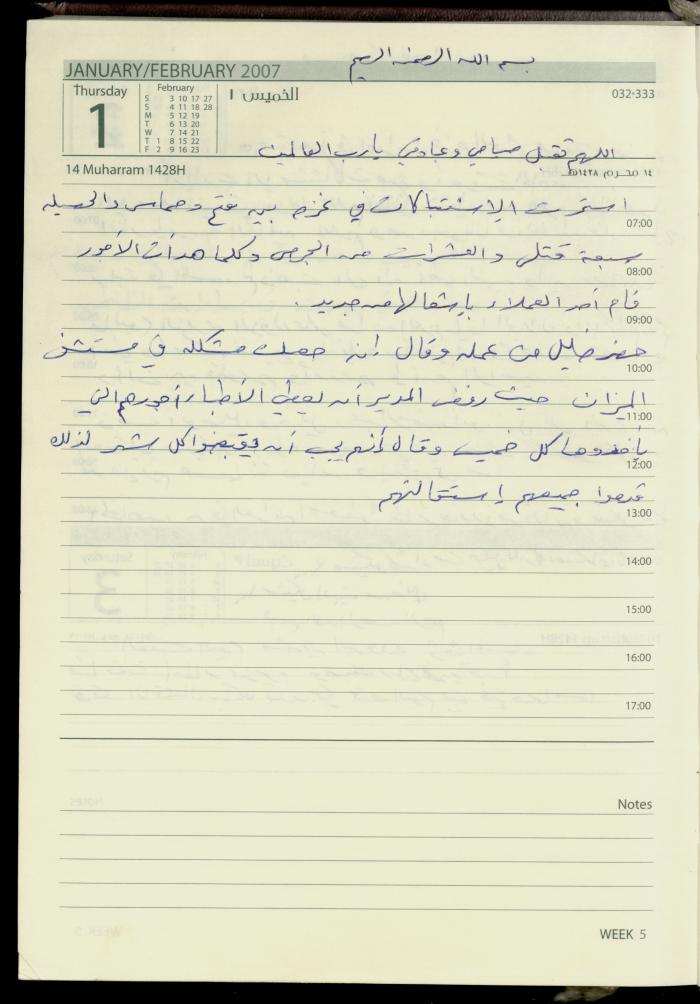 بسم الله الرحمن الرحيم
JANUARY/FEBRUARY 2007
Thursday
1
February
S 3 10 17 27
S 4 11 18 28
M 5 12 19
T 6 13 20
W 7 14 21
T 1 8 15 22
F 2 9 16 23
الخميس ١
032-333
اللهم تقبل صيامي وعبادتي يا رب العالمين
14 Muharram 1428H
١٤ محرم ١٤٢٨هـ
استمرت الاشتباكات في غزه بين فتح وحماس والحصيله
07:00
سبعة قتلى والعشرات من الجرحى وكلما هدأت الأمور
08:00
قام أحد العملاء بإشعالها من جديد .
09:00
حضر خليل من عمله وقال إنه حصلت مشكله في مستشفى
10:00
الميزان حيث رفض المدير أن يعطي الأطباء أجورهم التي
11:00
يأخذوها كل خميس وقال لهم يجب أن تقبضوا كل شهر لذلك
12:00
قدموا جميعهم إستقالتهم
13:00
14:00
15:00
16:00
17:00
Notes
WEEK 5